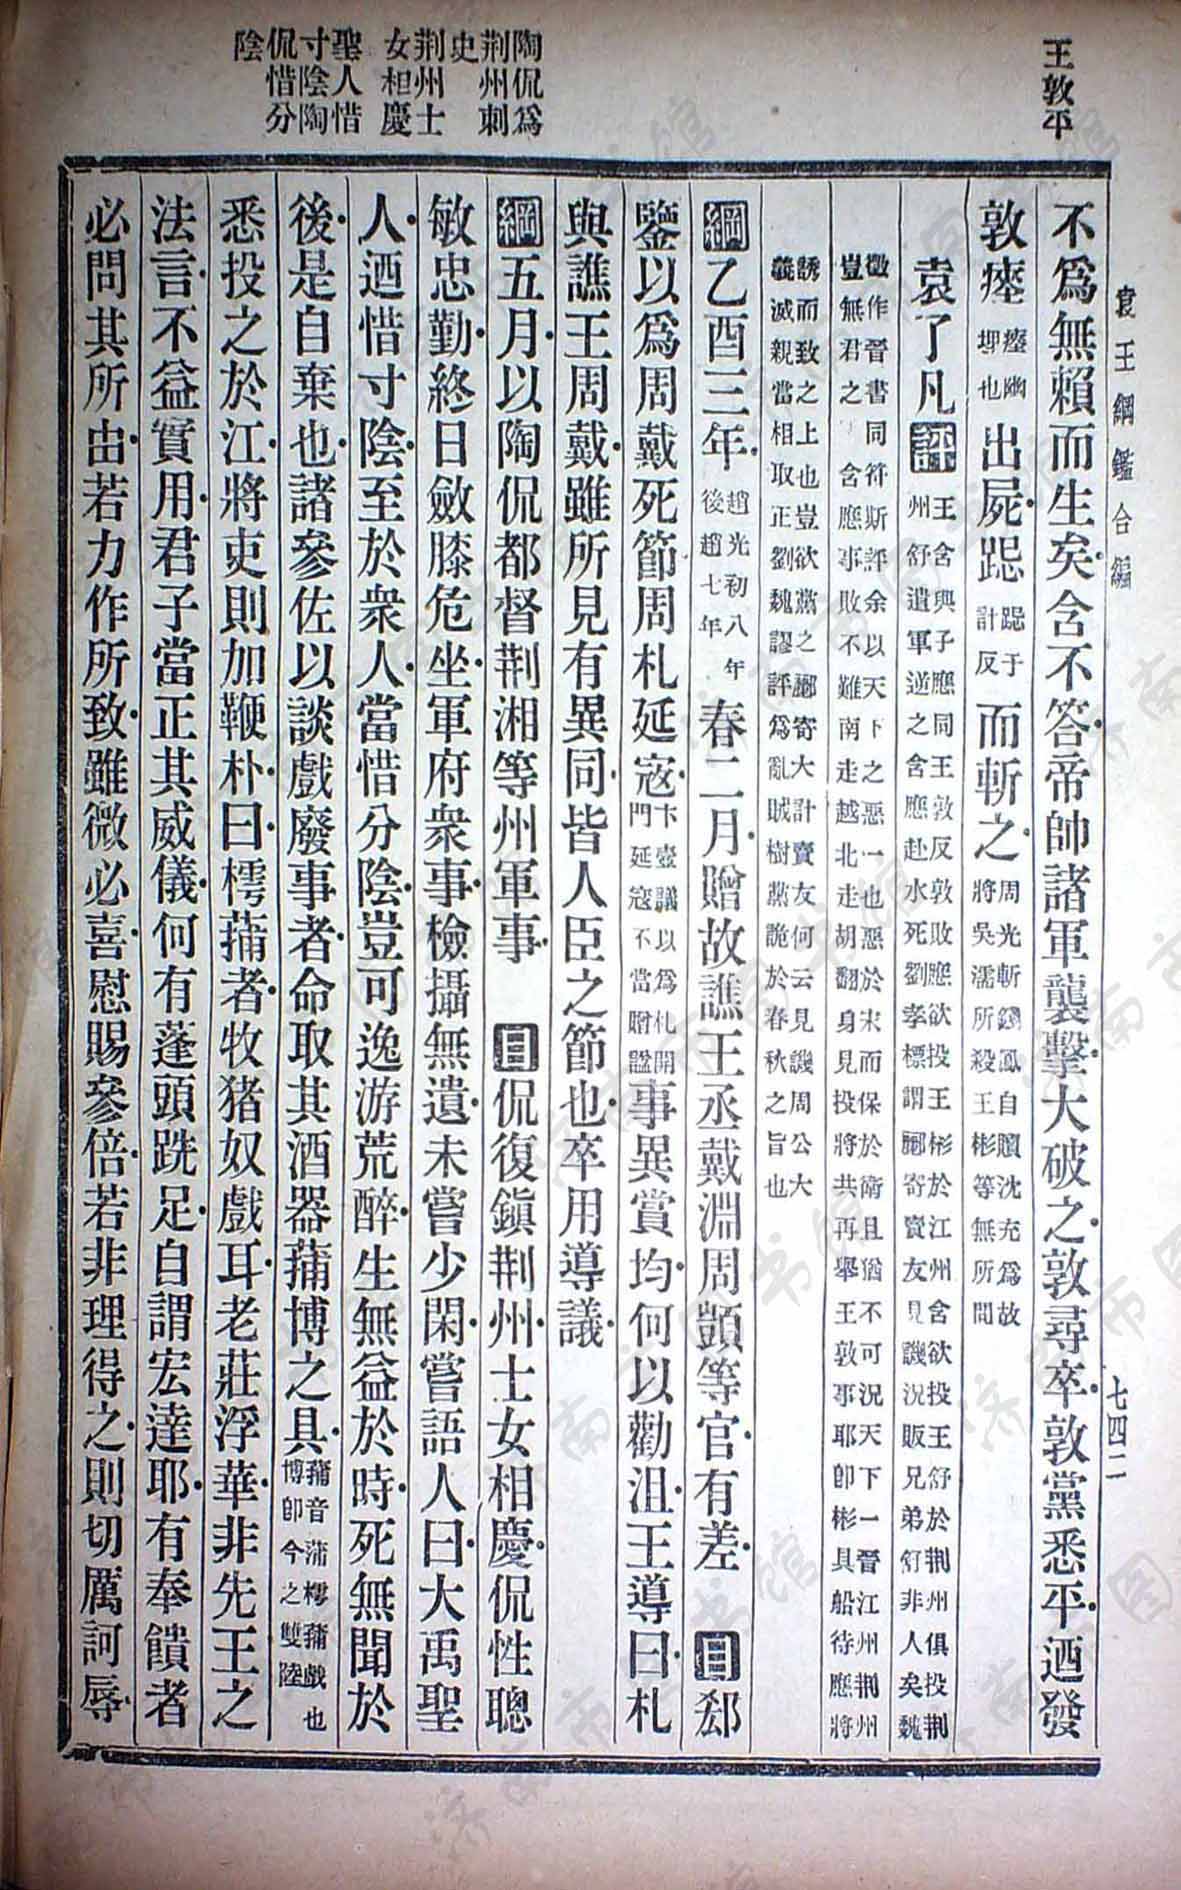 王敦平
陶侃爲
荆州刺
史
荆州士
女相慶
聖人惜
寸陰陶
侃惜分
陰
袁王綱鑑合編
七四二
不爲無賴而生矣含不答帝帥諸軍襲擊大破之敦尋卒敦黨悉平迺發
敦瘞瘞幽埋也出屍跽跽于計反而斬之周光斬錢鳳自贖沈充爲故將吳濡所殺王彬等無所問
袁了凡評王含與子應同王敦反敦敗應欲投王彬於江州含欲投王舒於荆州俱投荆州舒遣軍逆之含應赴水死劉孝標謂酈寄賣友見譏況販兄弟舒非人矣魏
徵作晉書同符斯評余以天下之惡一也惡於宋而保於衛且猶不可況天下一晉江州荆州豈無君之含應事敗不難南走越北走胡翻身見投將共再舉王敦事耶卽彬具船待應將
誘而致之上也豈欲黨之酈寄大計賣友何云見譏周公大義滅親當相取正劉魏謬評爲亂賊樹燕詭於春秋之旨也
綱乙酉三年趙光初八年後趙七年春二月贈故譙王丞戴淵周顗等官有差目郄
鑒以爲周戴死節周札延寇卞壼議以爲札開門延寇不當贈謚事異賞均何以勸沮王導曰札
與譙王周戴雖所見有異同皆人臣之節也卒用導議
綱五月以陶侃都督荆湘等州軍事目侃復鎭荆州士女相慶侃性聰
敏忠勤終日斂膝危坐軍府衆事檢攝無遺未嘗少閑嘗語人曰大禹聖
人迺惜寸陰至於衆人當惜分陰豈可逸游荒醉生無益於時死無聞於
後是自棄也諸參佐以談戲廢事者命取其酒器蒱博之具蒱音蒲樗蒱戲也博卽今之雙陸
悉投之於江將吏則加鞭朴曰樗蒱者牧猪奴戲耳老莊浮華非先王之
法言不益實用君子當正其威儀何有蓬頭跣足自謂宏達耶有奉饋者
必問其所由若力作所致雖微必喜慰賜參倍若非理得之則切厲訶辱